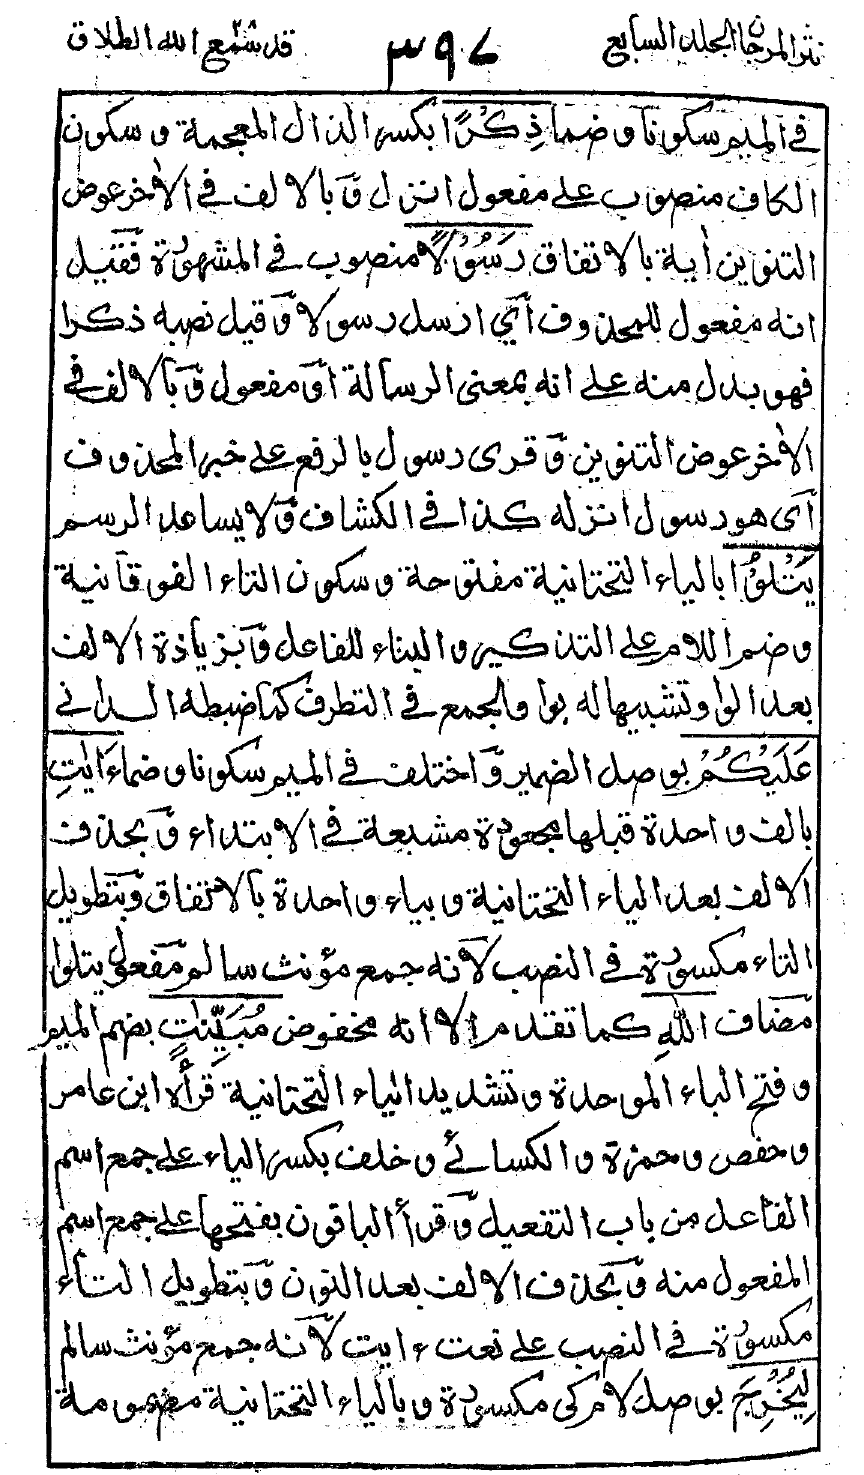 نثر المرجان الجلد السابع ٣٩٧ قد سمع الله الطلاق
في الميم سكونا وضما ذِكْرًا بكسر الذال المعجمة وسكون
الكاف منصوب على مفعول انزل وبالالف في الاخر عوض
التنوين أية بالاتفاق رَسُوْلًا منصوب في المشهورة فقيل
انه مفعول للمحذوف أي ارسل رسولا وقيل نصبه ذكرا
فهو بدل منه على انه بمعنى الرسالة او مفعول وبالالف في
الاخر عوض التنوين وقرى رسول بالرفع على خبر المحذوف
أى هو رسول انزله كذا في الكشاف ولا يساعد الرسم
يَتْلُوْا بالياء التحتانية مفتوحة وسكون التاء الفوقانية
وضم اللام على التذكير والبناء للفاعل وبزيادة الالف
بعد الواو تشبيها له بواو الجمع في التطرف كما ضبطه الداني
عَلَيْكُمْ بوصل الضمير واختلف في الميم سكونا وضما ءَايٰتِ
بالف واحدة قبلها مجعودة مشبعة في الابتداء وبحذف
الالف بعد الياء التحتانية وبياء واحدة بالاتفاق وبتطويل
التاء مكسورة في النصب لانه جمع مؤنث سالم مفعول يتلوا
مضاف اللّٰهِ كما تقدم الا انه مخفوض مُبَيِّنٰتٍ بضم الميم
وفتح الباء الموحدة وتشديد الياء التحتانية قرأه ابن عامر
وحفص وحمزة والكسائي وخلف بكسر الياء على جمع اسم
الفاعل من باب التفعيل وقرأ الباقون بفتحها على جمع اسم
المفعول منه وبحذف الالف بعد النون وبتطويل التاء
مكسورة في النصب على نعت ءايت لانه جمع مؤنث سالم
لِيُخْرِجَ بوصل لام كى مكسورة وبالياء التحتانية مضمومة